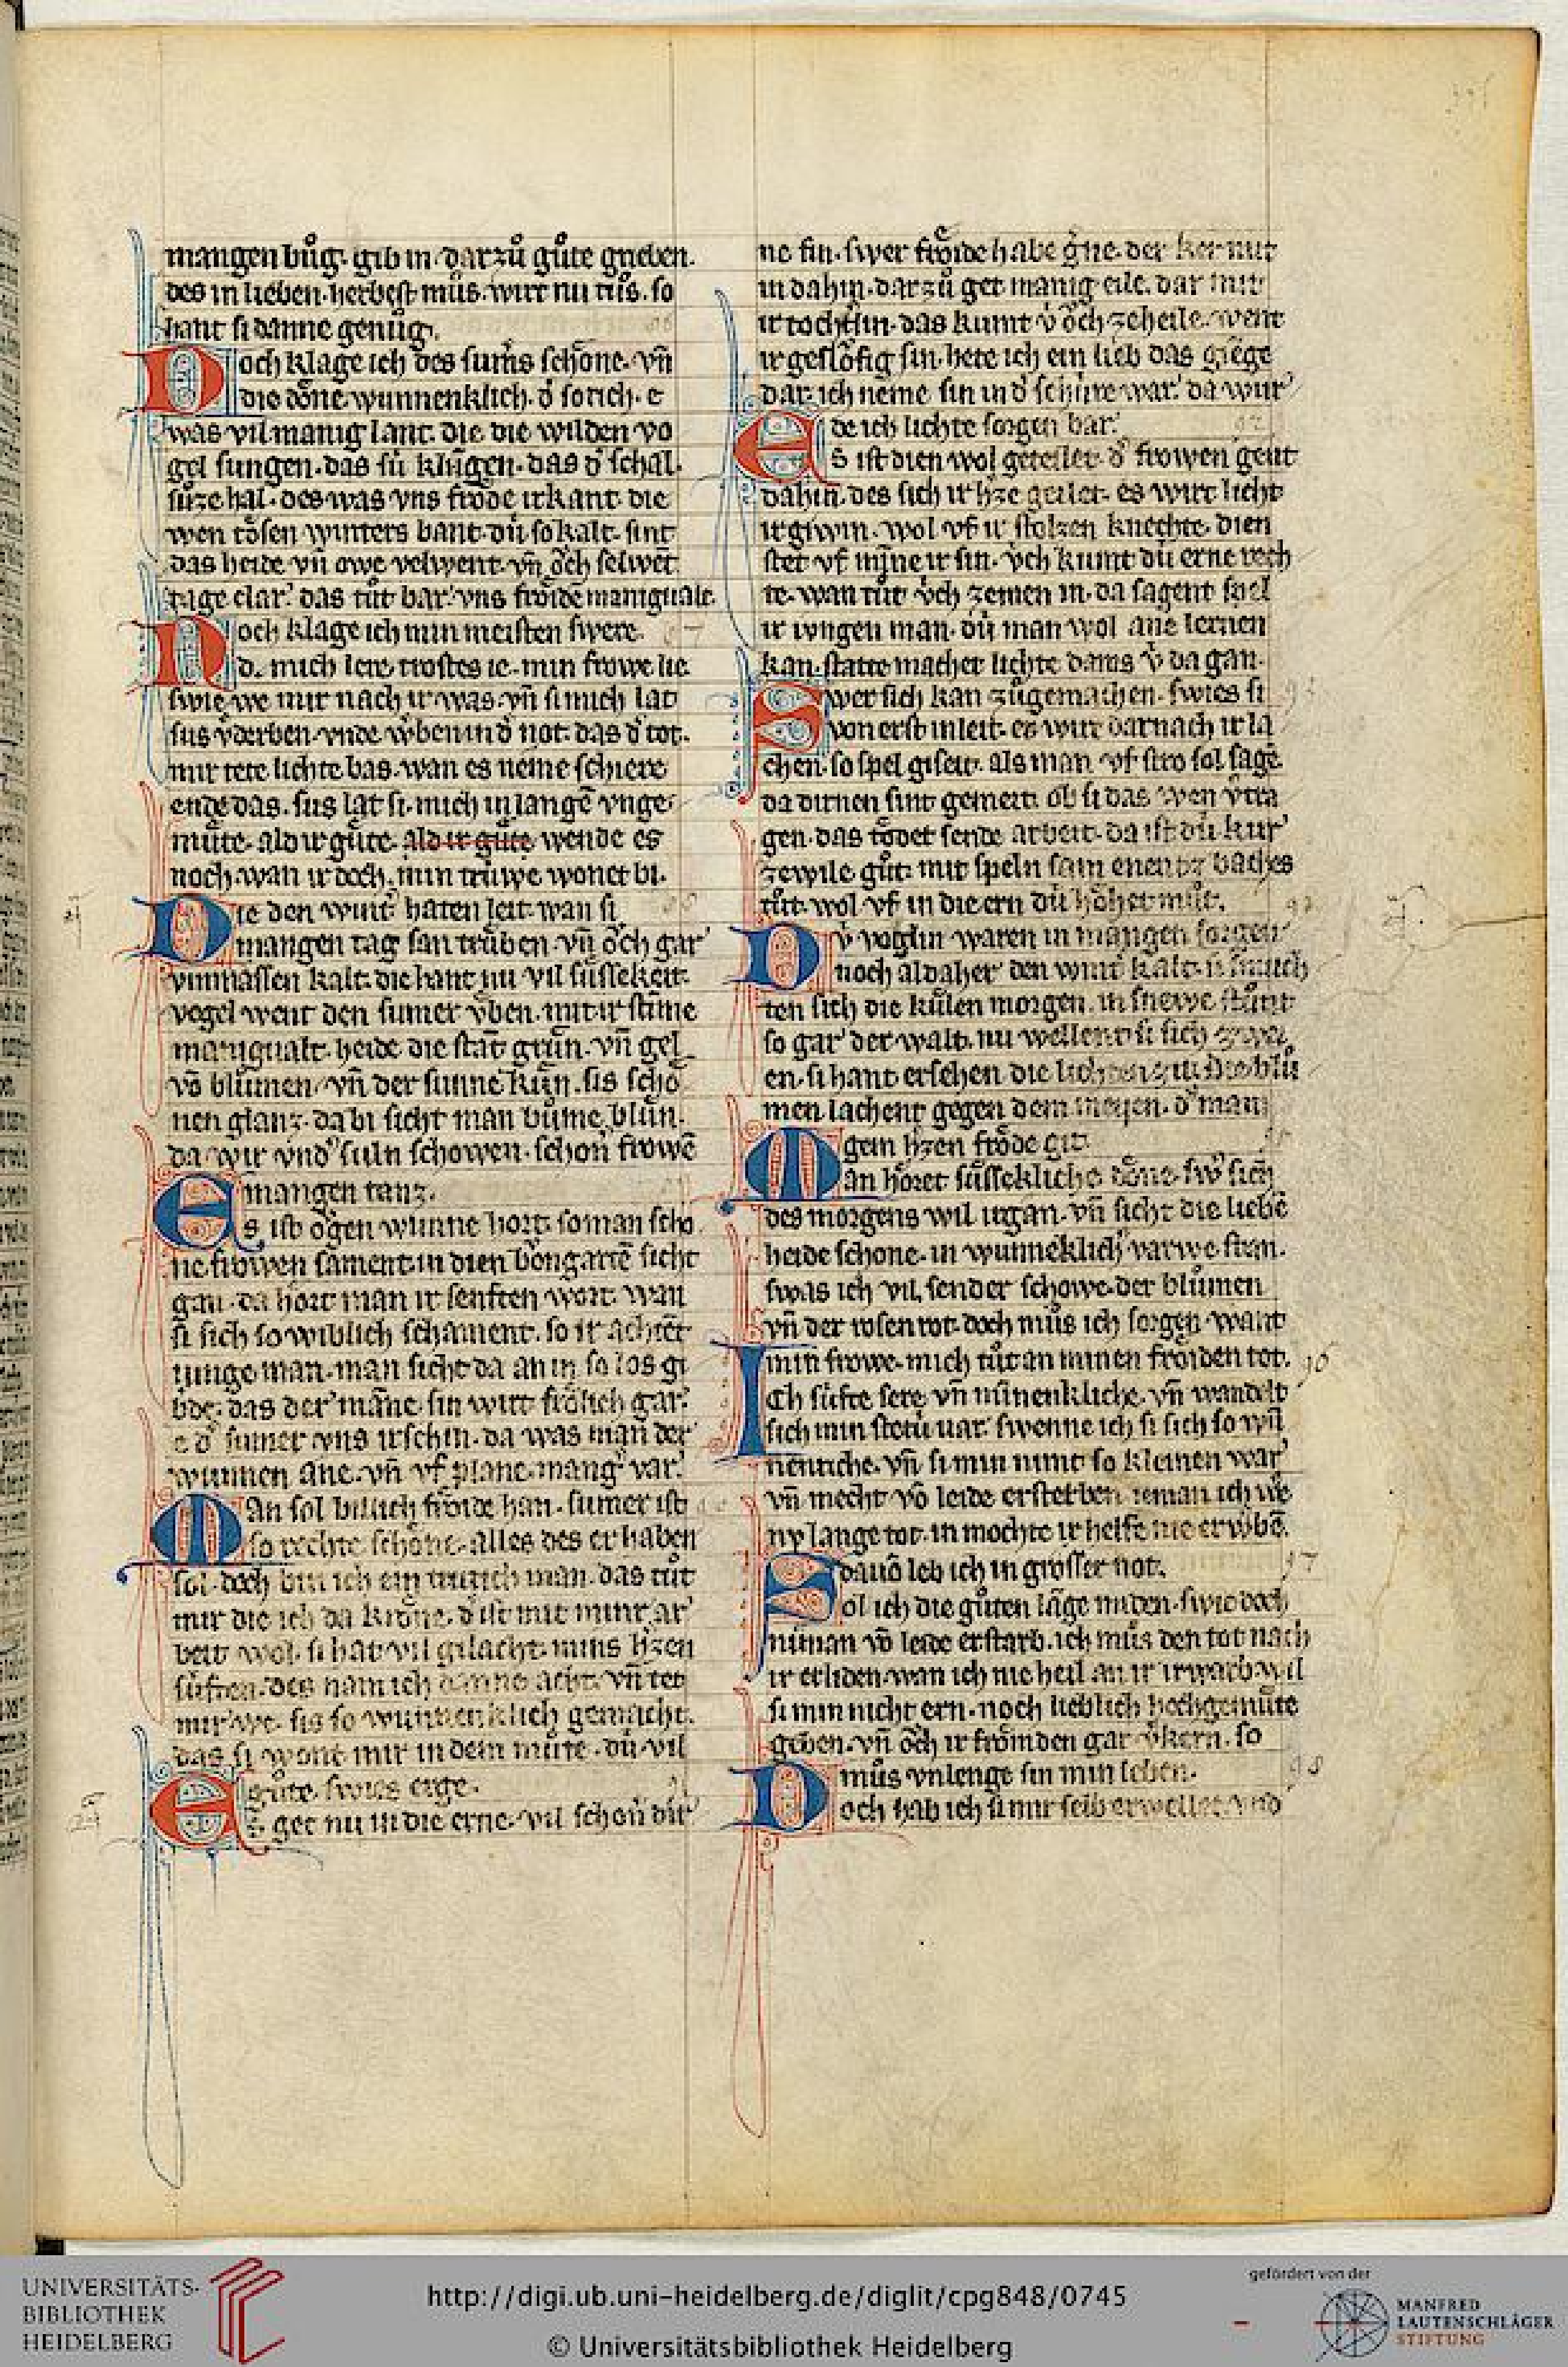 mangen bůg. gib in. darzů gůte grieben.
des in lieben. herbest můs. wirt nu ůs. so
hant si danne genůg.
Doch klage ich des sum̄s schöne. vn̄
die döne wunnenklich. d' so rich. e
was vil manig lant. die die wilden vo
gel sungen. das sú klungen. das d' schal.
sůze hal. des was vns fröde irkant. die
wen tősen winters bant. dú so kalt. sint
das heide vn̄ owe velwent. vn̄ ȯch selwēt
tage clar' das tůt bar' vns fröide manigualt.
Noch klage ich min meisten swere.
d. mich lere trostes ie. min frowe lie
swie we mir nach ir was. vn̄ si mich lat
sus v̓derben. vnde w̓ben in d' not. das d' tot.
mir tete lichte bas. wan es neme schiere
ende das. sus lat si mich in langē vnge
můte. ald ir gůte. ald ir gůte wende es
noch. wan ir doch. min trúwe wonet bi.
Die den wint' haten leit. wan si
mangen tag san trůben. vn̄ ȯch gar'
vnmassen kalt. die hant nu vil sůssekeit.
vogel went den sumer v̓ben. mit ir stīme
manigualt. heide die stāt grůn. vn̄ gel
vō blůmen. vn̄ der sunne kůn. sis schō
nen glanz. da bi sicht man bůme blůn.
da wir vnd' suln schowen. schon' frowē
mangen tanz.
Es ist ȯgen wunne hort. so man scho
ne frowen sament. in dien bȯngartē sicht
gan. da hȯrt man ir senften wort. wan
si sich so wiblich schament. so ir achtēt
iunge man. man sicht da an in so los gi
bde. das der māne sin wirt frölich gar'
e d' sumer vns irschin. da was man der
wunnen ane. vn̄ vf plane. mang' var'
Man sol billich fröide han. sumer ist
so rechte schöne. alles des er haben
sol. doch bin ich ein trurich man. das tůt
mir die ich da kröne. d' ist mit minr ar'
beit wol. si hat vil gilacht. mins h'zen
súften. des nam ich danne acht. vn̄ tet
mir we. sis so wunnenklich gemacht.
das si wont mir in dem můte. dú vil
gůte. swies erge.
Es get nu in die erne. vil schon' dir'
ne sin. swer fröide habe g'ne. der ker mit
in dahin. darzů get manig eile. dar mit
ir tocht'lin. das kumt v̓ ȯch ze heile. went
ir geslȯfig sin. hete ich ein lieb das giēge
dar. ich neme sin in d' schúre war. da wur'
de ich lichte sorgen bar.
Es ist dien wol geteilet. d' frowen geut
dahin. des sich ir h'ze geilet. es wirt licht
ir giwin. wol vf ir stolzen knechte. dien
stet vf mīne ir sin. v̓ch kumt dú erne rech
te. wan tůt v̓ch zemen in. da sagent spel
ir iungen man. dú man wol ane lernen
kan. statte machet lichte danis v̓ da gan.
Swer sich kan zůgemachen. swies si
von erst in leit. es wirt darnach ir la
chen. so spel giseit. als man vf stro sol sagē
da dirnen sint gemeit. ob si das wen v̓tra
gen. das tȯdet sende arbeit. da ist dú kur'
zewile gůt. mit speln sam enent bz baches
tůt. wol vf in die ern dú hȯhet můt.
Dv̓ voglin waren in mangen sorgen
noch al daher den wint' kalt. si smuch
ten sich die kůlen morgen. in snewe stůnt
so gar' der walt. nu wellent si sich zwei
en. si hant ersehen die lichten zit. die blů
men. lachent gegen dem meyen. d' man
gem h'zen fröde git.
Man hȯret sůssekliche döne. sw' sich
des morgens wil irgan. vn̄ sicht die liebē
heide schone. in wunneklich' varwe stan.
swas ich vil sender schowe. der blůmen
vn̄ der rosen rot. doch můs ich sorgen. want
min frowe. mich tůt an minen fröiden tot.
Ich súfte sere vn̄ minenkliche. vn̄ wandelt
sich min stetú uar. swenne ich si sich so wū
nentiche. vn̄ si min nimt so kleinen war'
vn̄ mecht vō leide ersterben ieman. ich we
ny lange tot. in mochte ir helfe nie erw̓bē.
dauō leb ich in grosser not.
Sol ich die gůten lāge miden. swie doch
niman vō leide erstarb. ich můs den tot nach
ir erliden. wan ich nie heil an ir irwarb. wil
si min nicht ern. noch lieblich hochgemůte
geben. vn̄ ȯch ir frömden gar v̓kern. so
můs vnlenge sin min leben.
Doch hab ich si mir selb erwellet. vnd
UNIVERSITÄTS-
BIBLIOTHEK
HEIDELBERG
http://digi.ub.uni-heidelberg.de/diglit/cpg848/0745
© Universitätsbibliothek Heidelberg
gefördert von der
MANFRED
LAUTENSCHLÄGER
STIFTUNG